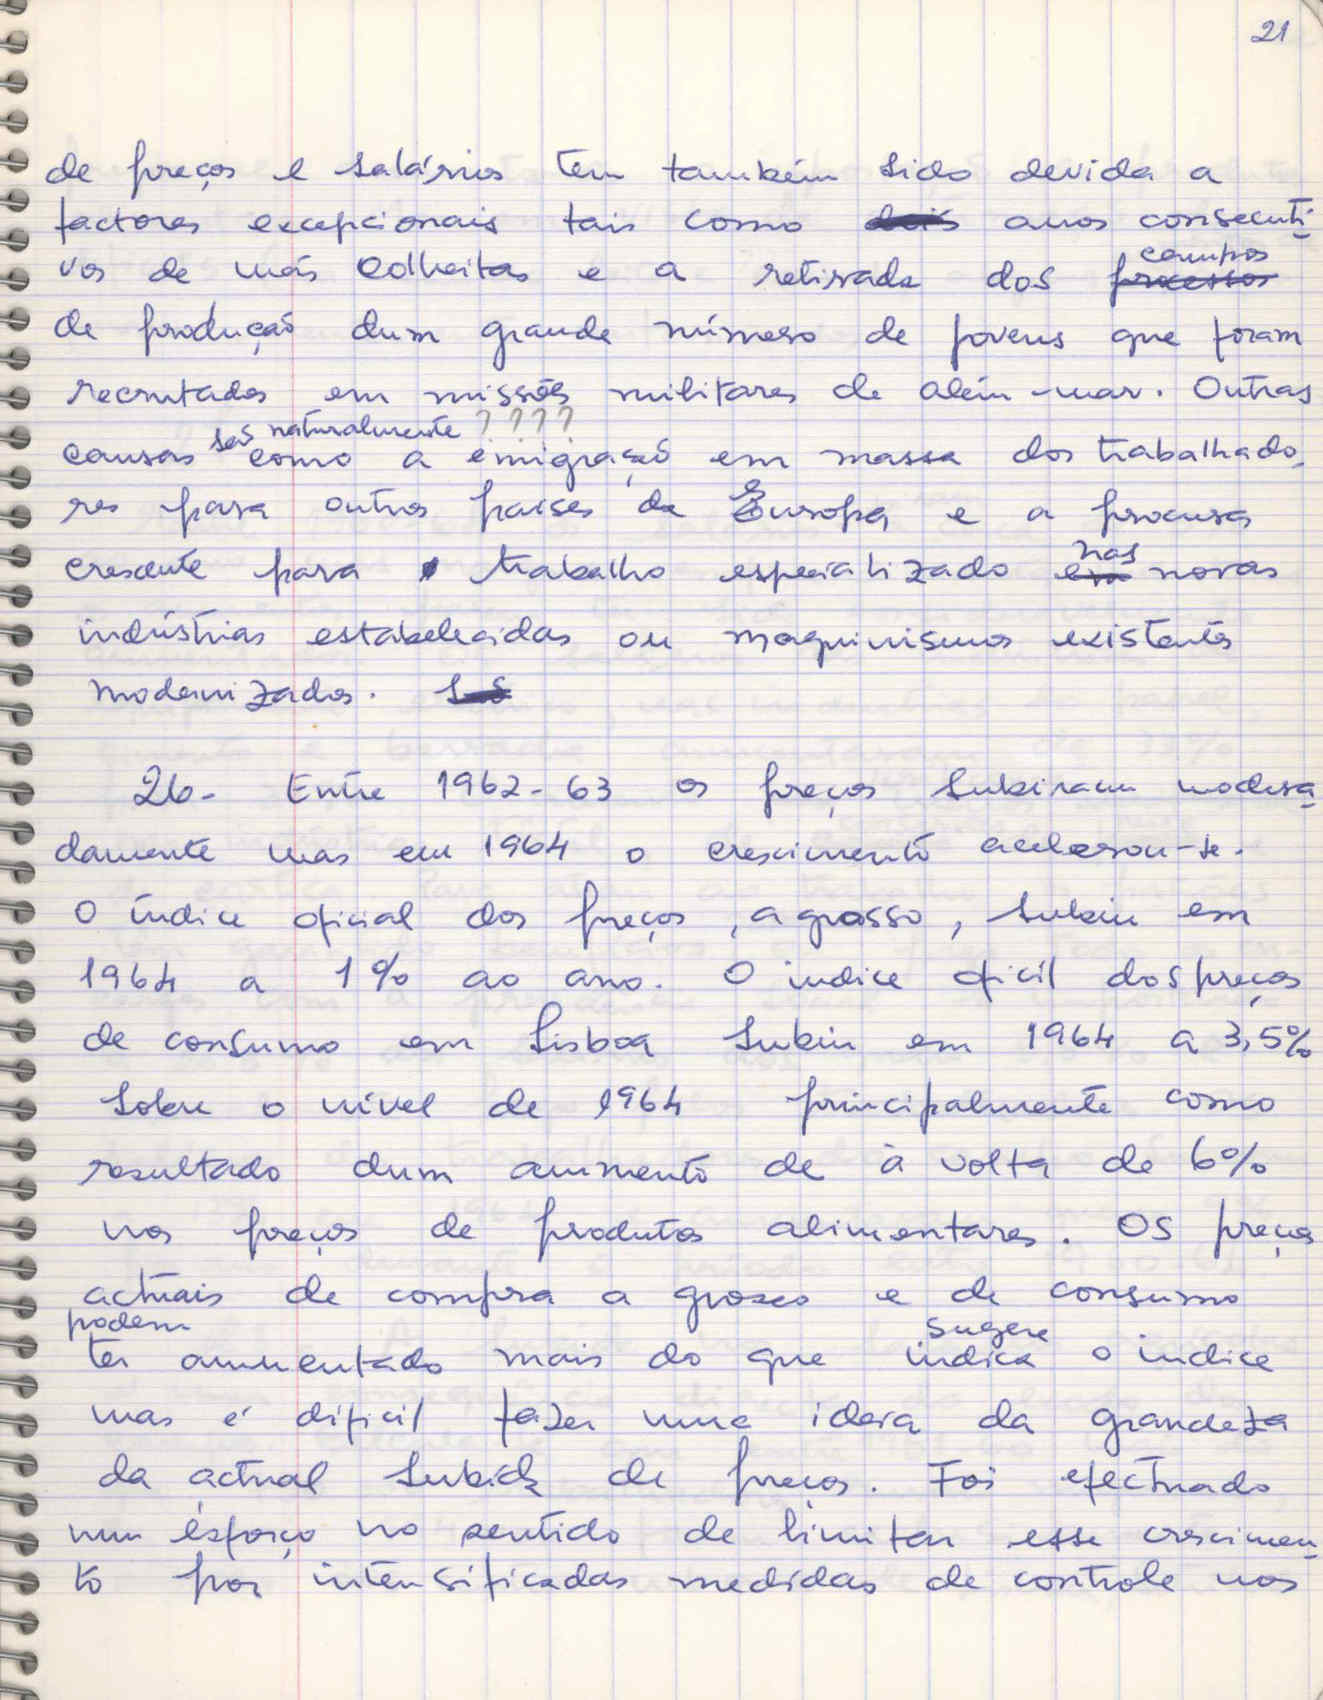 21
de preços e salários tem também sido devida a
factores excepcionais tais como dois anos consecuti-
vos de más colheitas e a retirada dos processos campos
de produção dum grande número de jovens que foram
recrutados em missões militares de além-mar. Outras
são naturalmente ????
causas como a emigração em massa dos trabalhado-
res para outros países da Europa e a procura
crescente para trabalho especializado em nas novas
indústrias estabelecidas ou maquinismos existentes
modernizados.
26- Entre 1962-63 os preços subiram modera-
damente mas em 1964 o crescimento acelerou-se.
O índice oficial dos preços, a grosso, subiu em
1964 a 1% ao ano. O índice oficil dos preços
de consumo em Lisboa subiu em 1964 a 3,5%
sobre o nível de 1964 principalmente como
resultado dum aumento de à volta de 6%
nos preços de produtos alimentares. Os preços
actuais de compra a grosso e de consumo
podem sugere
ter aumentado mais do que indica o indice
mas é dificil fazer uma ideia da grandeza
da actual subida de preços. Foi efectuado
um esforço no sentido de limitar esse crescimen-
to por intensificadas medidas de controle nos